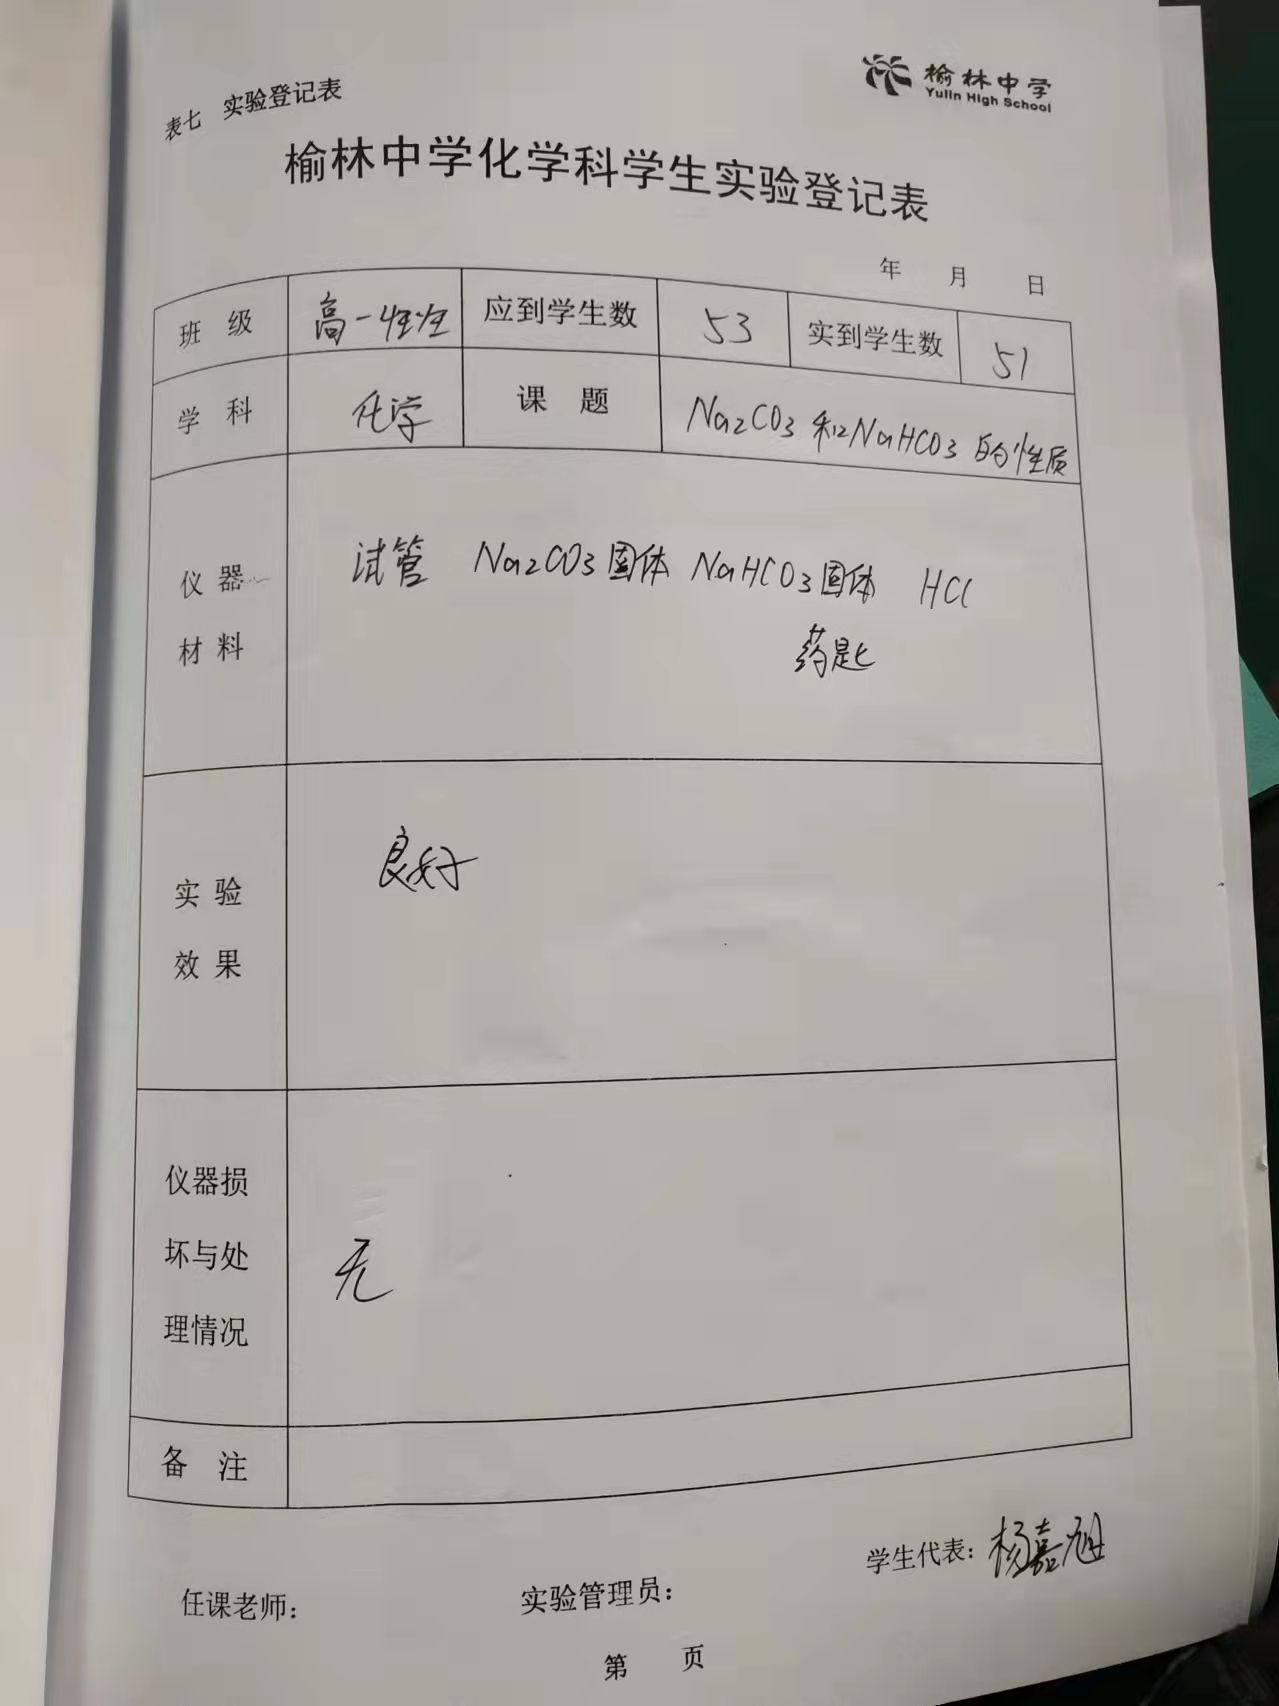 榆林中学
Yulin High School
表七 实验登记表
榆林中学化学科学生实验登记表
年 月 日
班 级 高一 应到学生数 53 实到学生数 51
学 科 化学 课 题 Na2CO3 和NaHCO3 的性质
仪 器
材 料
试管 Na2CO3固体 NaHCO3固体 HCl
药匙
实 验
效 果
良好
仪器损
坏与处
理情况
无
备 注
学生代表：杨嘉旭
任课老师： 实验管理员：
第 页